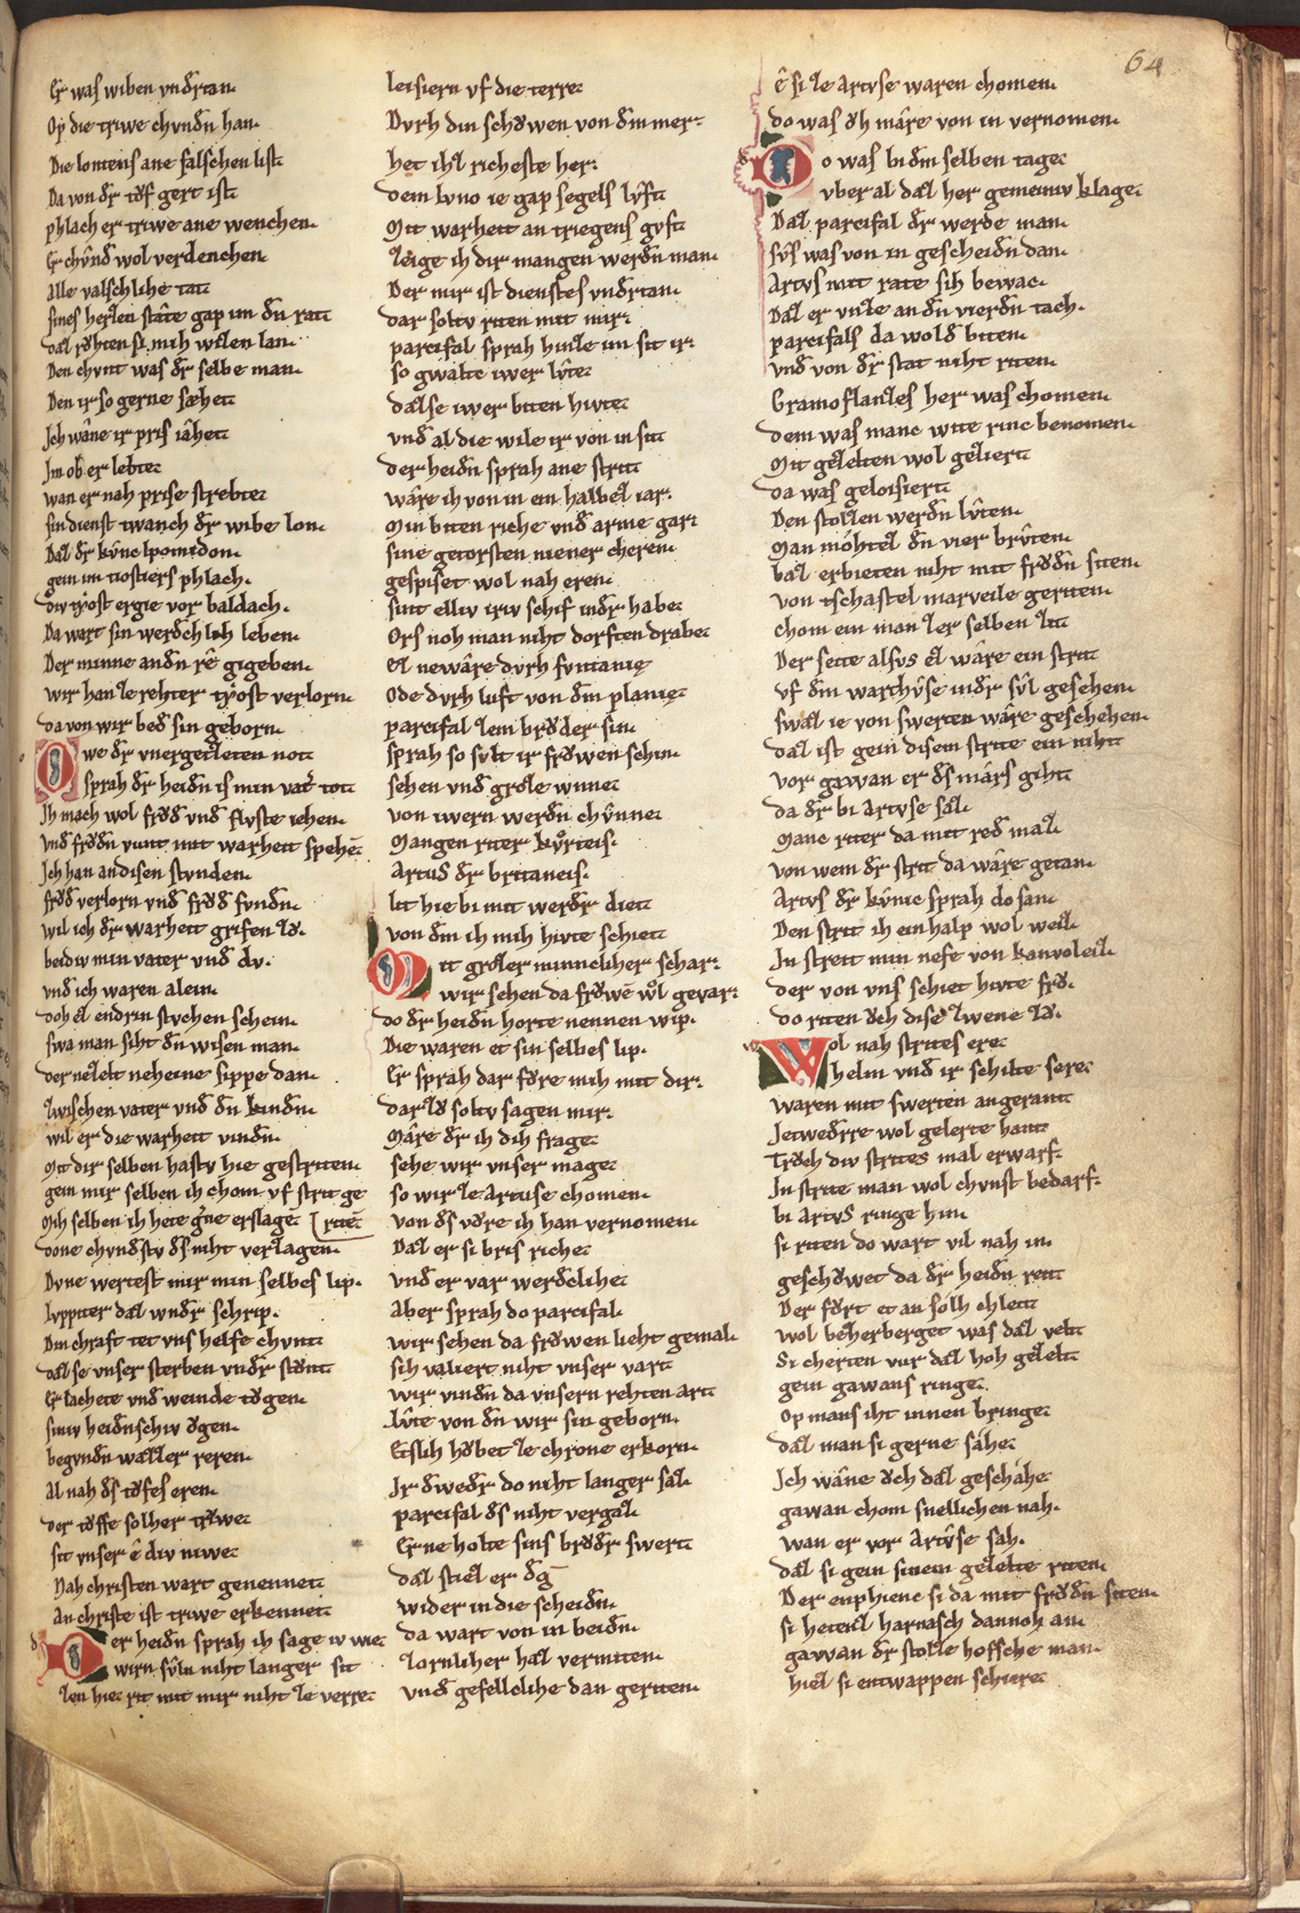 64
Er was wiben vndrtan.
Op die triwe chvndn han.
Die lonten ſ ane falſchen liſt.
Da von dr tof gert iſt.
phlach er triwe ane wenchen.
Er chvnd wol verdenchen.
alle valſchlihe tat.
ſines herzen ſtâte gap im dn rat.
daz rohten ſi mih wizen lan.
Den chvnt was dr ſelbe man.
Den ir ſo gerne ſæhet.
Jch wâne ir pris iâhet.
Jm ob er lebte.
wan er nah priſe ſtrebte.
ſin dienſt twanch dr wibe lon.
Daz dr kvnc Ipomidon.
gein im tioſtiers phlach.
div tyoſt ergie vor baldach.
Da wart ſin werdchlich leben.
Der minne an dn rê gigeben.
wir han ze rehter tyoſt verlorn.
da von wir bed ſin geborn.
Owe dr vnergetzeten not.
ſprah dr heidn iſ min vatr tot.
Jh mach wol frod vnd flvſte iehen.
vnd frodn vunt mit warheit ſpehē.
Jch han an diſen ſtvnden.
frod verlorn vnd frod fvndn.
wil ich dr warheit grifen zo.
beidiv min vater vnd dv.
vnd ich waren alein.
doh ez en drin ſtvchen ſchein.
ſwa man ſiht dn wiſen man.
der nezelt neheine ſippe dan.
zwiſchen vater vnd dn kindn.
wil er die warheit vindn.
Mit dir ſelben haſtv hie geſtriten.
gein mir ſelben ih chom vf ſtrit ge
Mih ſelben ih hete gne erſlagē. ritē.
done chvndſtv dſ niht verzagen.
Dvne werteſt mir min ſelbes lip.
Ivppiter daz wndr ſchrip.
Din chraft tet vns helfe chvnt.
daz ſe vnſer ſterben vndr ſtont.
Er lachete vnd weinde togen.
ſiniv heidnſchiv ogen.
begvndn wazzer reren.
al nah dſ tofes eren.
der toffe ſol her triwe.
ſit vnſer ê div niwe.
Nah chriſten wart genennet.
An chriſte iſt triwe erkennet.
Der heidn ſprah ih ſage iv wie.
wirn ſvln niht langer ſit
zen hie. rit mit mir niht ze verre.
leiſiern vf die terre.
Dvrh din ſchowen von dm mer.
het ihz richeſte her.
dem Ivno ie gap ſegels lvft.
Mit warheit an triegens gvft.
zeige ih dir mangen werdn man.
Der mir iſt dienſtes vndrtan.
dar ſoltv riten mit mir.
parcifal ſprah hinze im ſit ir.
ſo gwaltc iwer lvte.
daz ſe iwer biten hivte.
vnd al die wile ir von in ſit.
der heidn ſprah ane ſtrit.
wâre ih von in ein halbez iar.
Min biten riche vnd arme gar.
ſine getorſten niener cheren.
geſpiſet wol nah eren.
ſint elliv iriv ſchif indr habe.
Ors noh man niht dorften drabe.
Ez newâre dvrh fvntanie.
Ode dvrh luft von dm planie.
parcifal zem broder ſin.
ſprah ſo ſvlt ir frowen ſchin.
ſehen vnd groze winne.
von iwern werdn chvnne.
Mangen riter kvrteis.
Artus dr britaneis.
Lit hie bi mit werdr diet.
von dm ih mih hivte ſchiet.
Mit grozer minneclicher ſchar.
wir ſehen da frowē wol gevar.
do dr heidn horte nennen wip.
Die waren et ſin ſelbes lip.
Er ſprah dar fore mih mit dir.
dar zo ſoltv ſagen mir.
Mâre dr ih dih frage.
ſehe wir vnſer mage.
ſo wir ze Artuſe chomen.
von dſ vore ih han vernomen.
Daz er ſi bris riche.
vnd er var werdecliche.
Aber ſprah do parcifal.
wir ſehen da frowen lieht gemal.
ſih valiert niht vnſer vart.
wir vindn da vnſern rehten art.
Lvte von dn wir ſin geborn.
Etſlih hobet ze chrone erkorn.
Jr dwedr do niht langer ſaz.
parcifal dſ niht vergaz.
Erne holte ſins brodr ſwert.
daz ſtiez er dg
wider in die ſcheidn.
da wart von in beidn.
zornliher haz vermiten.
vnd geſelleclihe dan geriten.
ê ſi ze Artvſe waren chomen.
do was oh mâre von in vernomen.
Do was bi dm ſelben tage.
vber al daz her gemeiniv klage.
Daz parcifal dr werde man.
ſvs was von in geſcheidn dan.
Artvs mit rate ſih bewac.
Daz er vnze an dn vierdn tach.
parcifals da wold biten.
vnd von dr ſtat niht riten.
Gramoflanzes her was chomen.
dem was manc wite rinc benomen.
Mit gezelten wol geziert.
da was geloiſiert.
Den ſtolzen werdn lvten.
Man mohtez dn vier brvten.
baz erbieten niht mit frodn ſiten.
von tſchaſtel marveile geriten.
chom ein man zer ſelben zit.
Der ſeite alſvs ez wâre ein ſtrit.
vf dm warthvſe indr ſvl geſehen.
ſwaz ie von ſwerten wâre geſchehen.
daz iſt gein diſem ſtrite ein niht.
vor gawan er dſ mârs giht.
da dr bi Artvſe ſaz.
Manc riter da mit red maz.
von wem dr ſtrit da wâre getan.
Artvs dr kvnic ſprah do ſan.
Den ſtrit ih einhalp wol weiz.
Jn ſtreit min nefe von kanvoleiz.
der von vns ſchiet hivte fro.
do riten och diſe zwene zo.
Wol nah ſtrites ere.
helm vnd ir ſchilte ſere.
waren mit ſwerten angerant.
Jetwedrre wol gelerte hant.
Troch div ſtrites mal erwarf.
Jn ſtrite man wol chvnſt bedarf.
bi Artvs ringe hin.
ſi riten do wart vil nah in.
geſchowet da dr heidn reit.
Der fort et an ſolh chleit.
wol beherberget was daz velt.
Si cherten vur daz hoh gezelt.
gein gawans ringe.
Op mans iht innen bringe.
daz man ſi gerne ſâhe.
Ich wâne och daz geſchâhe.
gawan chom ſnellichen nah.
wan er vor Artvſe ſah.
daz ſi gein ſinem gezelte riten.
Der enphienc ſi da mit frodn ſiten.
ſi hetenz harnaſch dannoh an.
gawan dr ſtolze hoffſche man.
hiez ſi entwappen ſchiere.